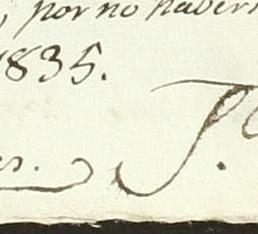 , por no haber
1835.
es. J.